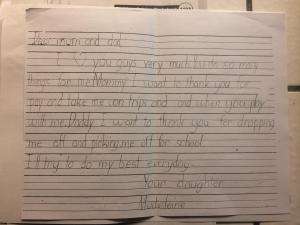 Dear mum and dad
I ♡ you guys very much. You do so many
things for me. Mommy I want to thank you for
pay and take me on trips and and when you play
with me. Daddy I want to thank you for dropping
me off and picking me off for school.
I'll try to do my best everyday.
Your daughter
Madeleine